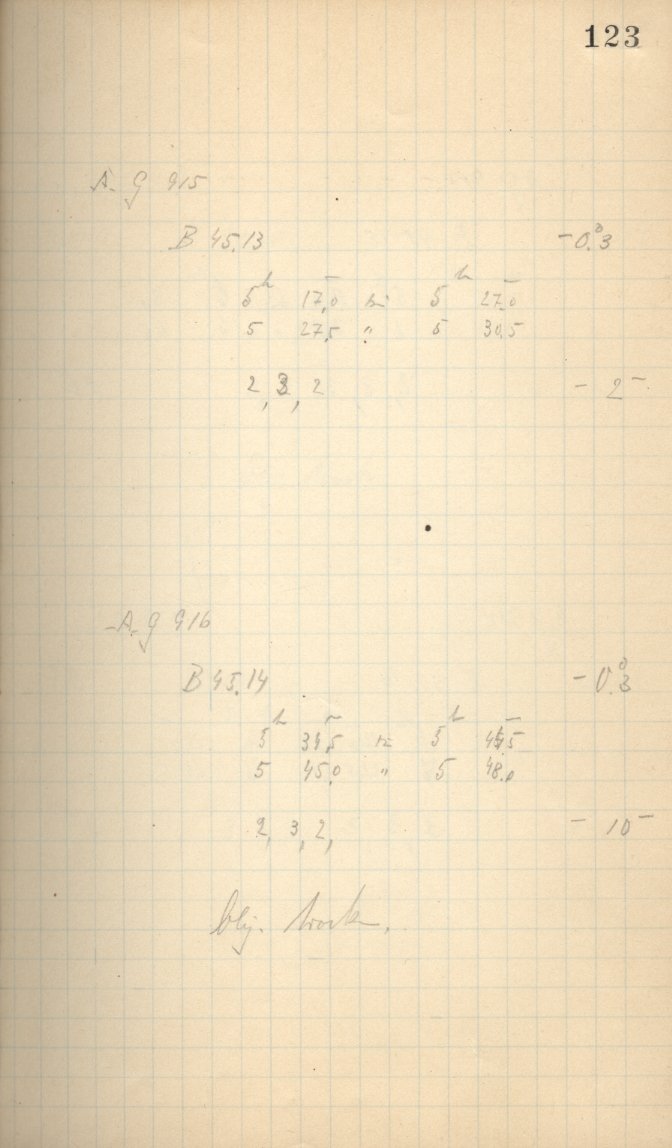 123
A. G 915
B 45.13 -0.°3
5h 17,0 bis 5h 27,0
5 27,5 " 5 30,5
2, 3, 2 - 2m
A. G 916
B 45.14 -0.°3
5h 34,5 bis 5h 44,5
5 45,0 " 5 48,0
2, 3, 2, - 10m
Obj. trocken.